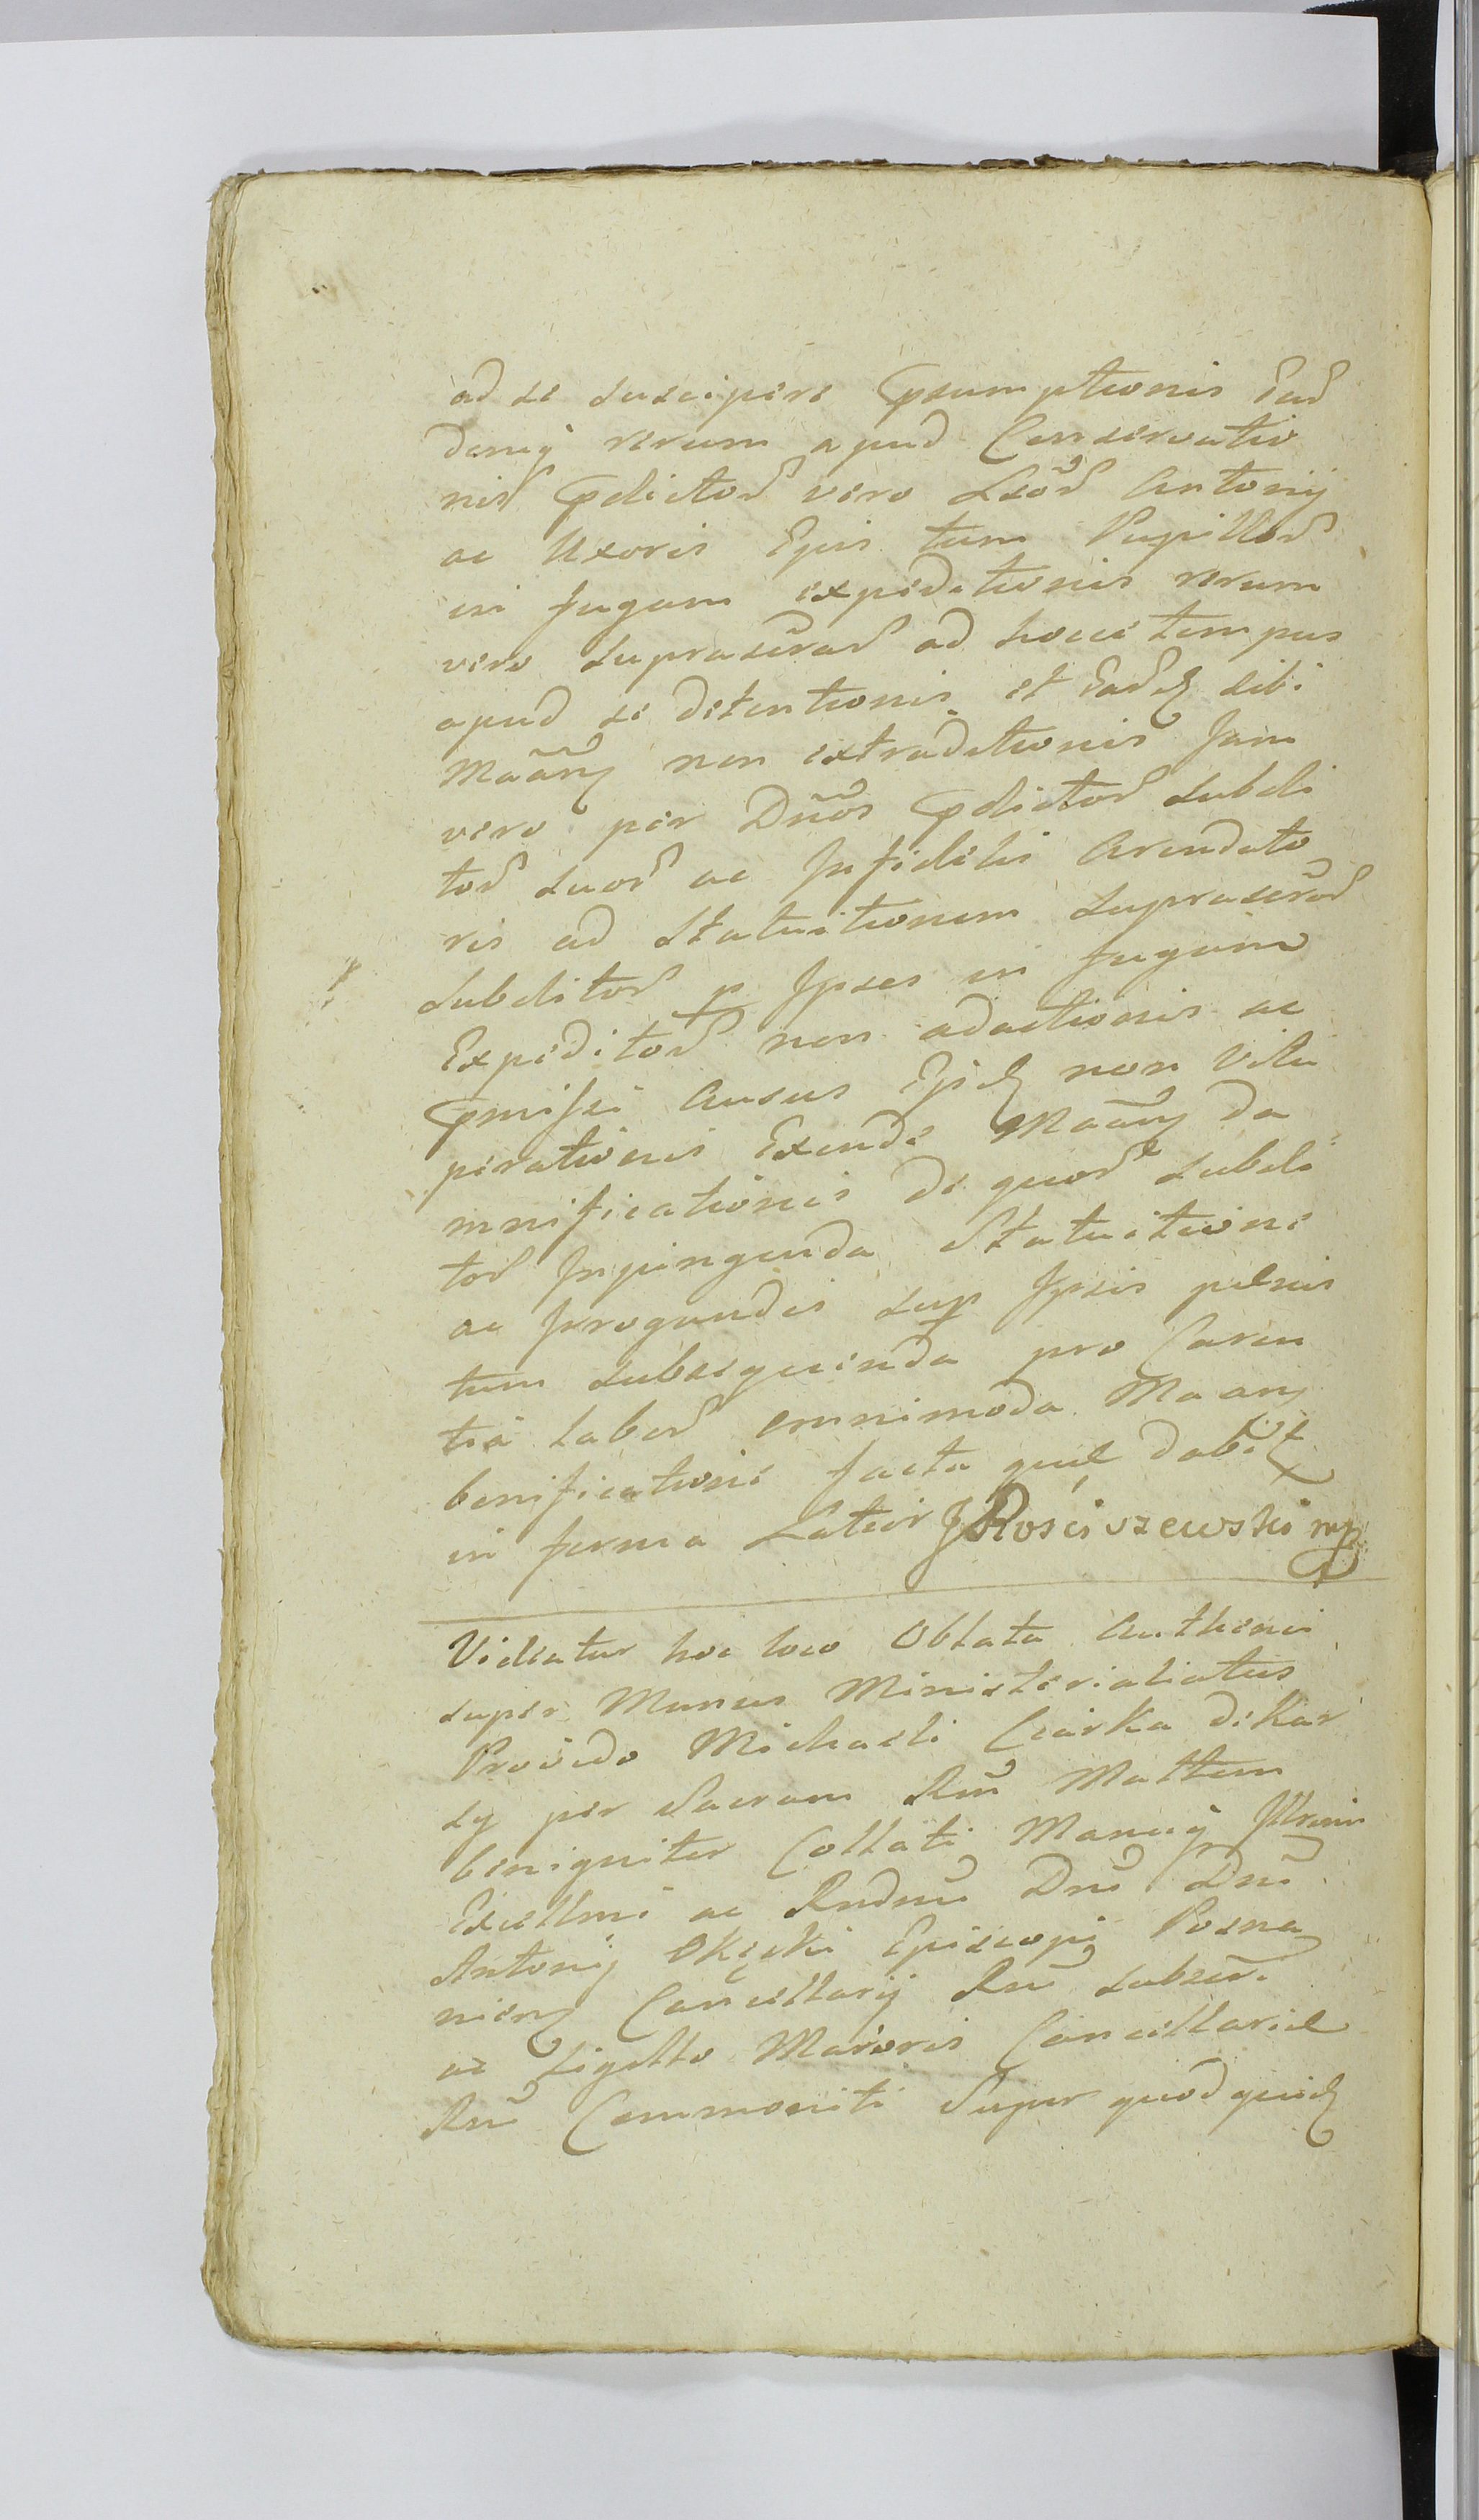 ad se suscipere Psumptionis Ead
demq rerum apud Conservatio
nis Pdictor vero Lbor Antonij
ac Uxoris Ejus tum Pupillor
in fugam expeditionis rerum
vero suprascrar ad hocce tempus
apud se detentionis et Eadq sibi
Maanq non extraditionis Jam
vero per Dnos Pdictor subdi
tor suor ac Infidelis Arendato
ris ad Statuitionem suprascror
subditor p Ipsos in fugam
Expeditor non adactionis ac
Pmissi Ausus Ejdq non Vitu
perationis Exinde Maanq da
mnificationis de quor subdi
tor Inpingenda Statuitione
ac Irrogandis sup Ipsis pænis
tum subsequenda pro Caren
tia Labor omnimoda Maanq
bonificatione facta quæ dabit
in forma Latior JRościszewski mp
Videatur hoc loco Oblata Authenci
super Munus Ministerialiatus
Provido Michaeli Czarka de Kar
sy per Sacram Rm Mattem
benigniter Collati Manuq Illrimi
Excellmi ac Rndmi Dni Dni
Antonij Okęcki Episcopi Posna
nienq Cancellarij Rni subscri
ac Sigillo Maioris Cancellariæ
Rni Communiti Super quod quidq